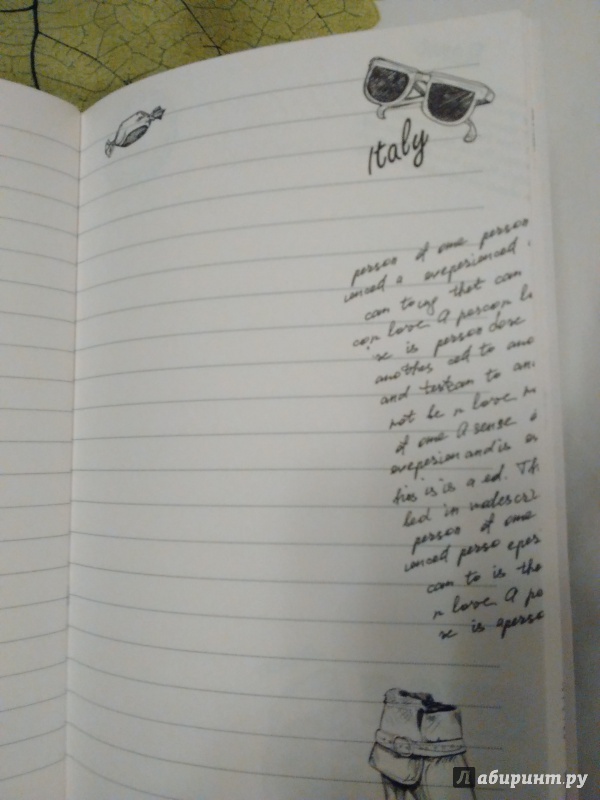 Italy
person of one person
ienced a eveperienced
can to ing that can
con love. A person h
se is person dose
another ced to ano
and testcan to an
not be n love. n
of one A sense
eveperien and is e
ties is is a ed. Th
led in
person of one
ienced perso eper
can to is the
n love. A pe
se is aperso
Лабиринт.ру